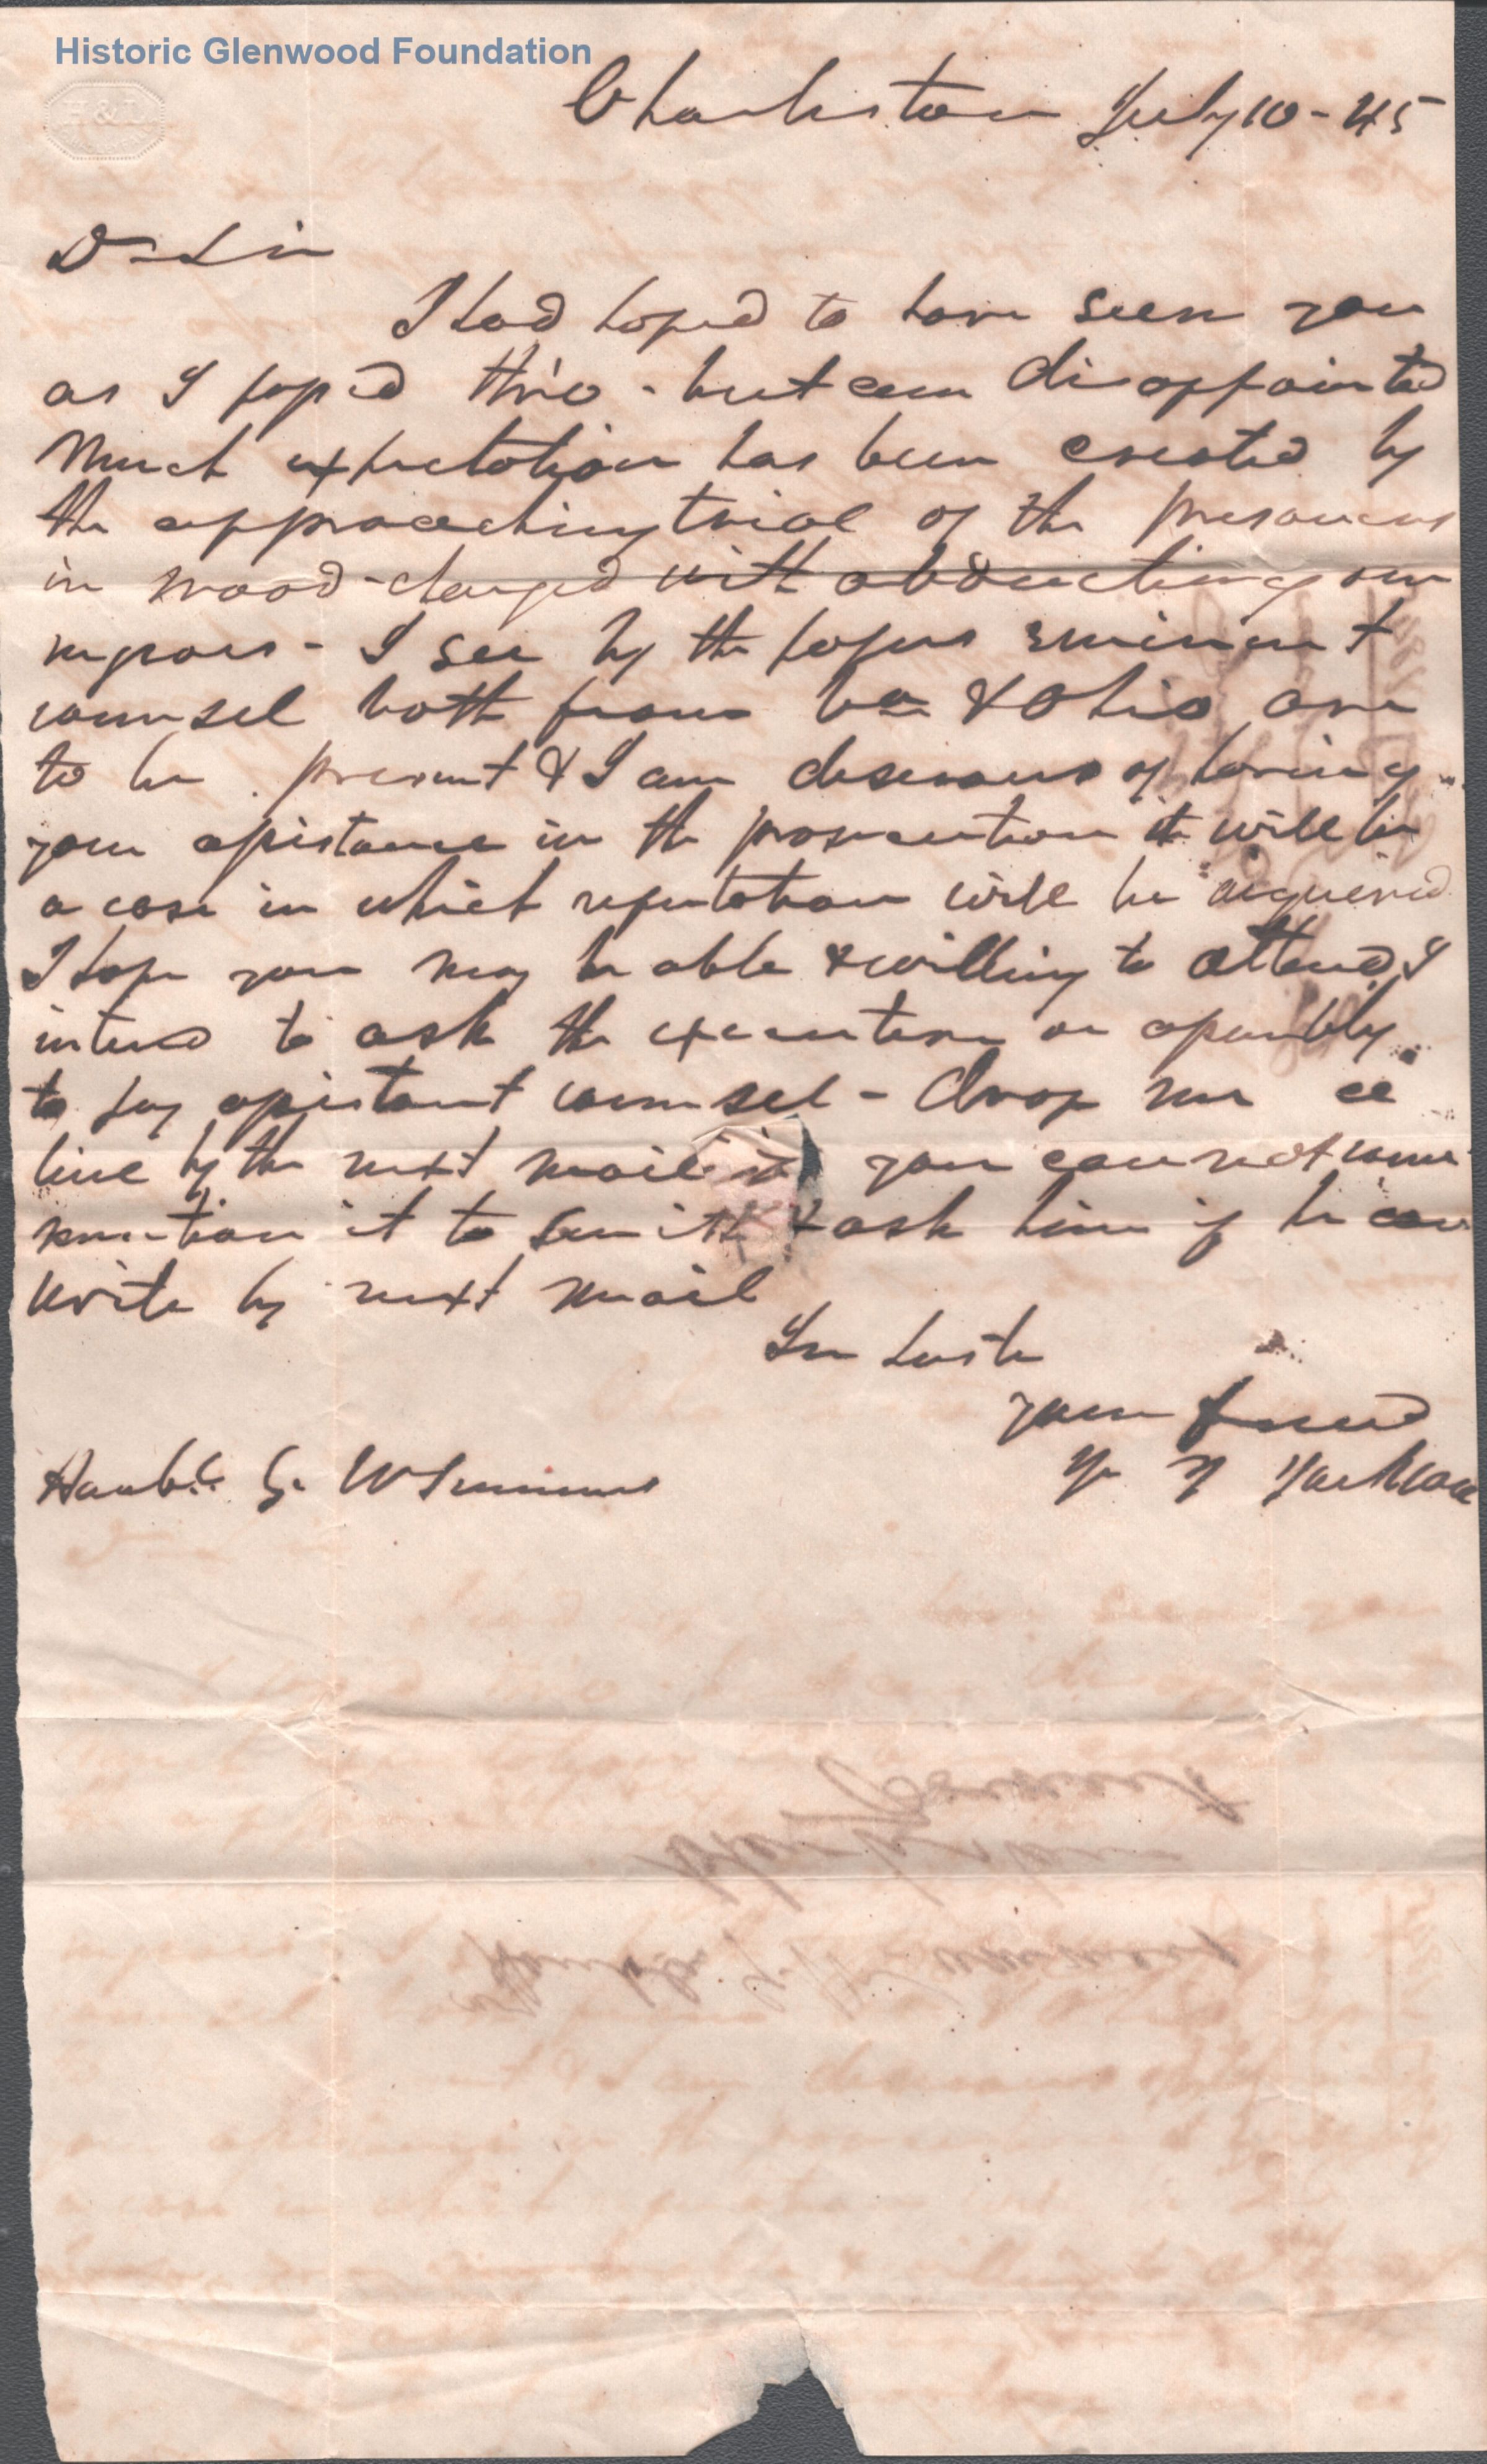 Historic Glenwood Foundation
H & L
Charleston July 10 - 45
Dr Sir
I had hoped to have seen you
as I passed thro - but am disappointed
Much expectation has been created by
the approaching trial of the prisoners
in wood - charged with abducting our
negroes - I see by the papers eminent
counsel both from Va & Ohio are
to be present & I am desirous of having
your assistance in the prosecution it will be
a case in which reputation will be acquired
I hope you may be able & willing to attend I
intend to ask the executive or assembly
to pay assistant counsel - drop me a
line by the next mail if you can not come
mention it to Smith & ask him if he can
write by next mail
In haste
your friend
J J Jackson
Honble G. W Summers